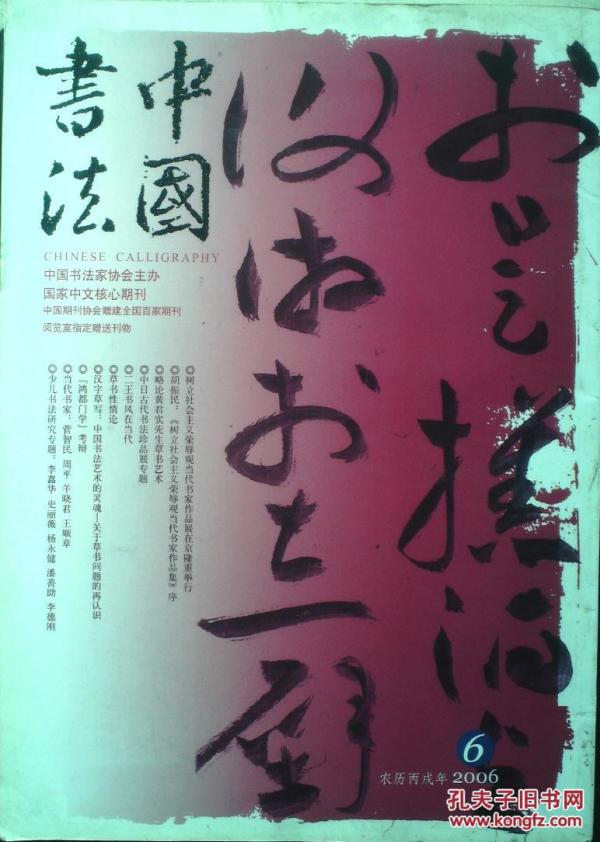 中國
書法
CHINESE CALLIGRAPHY
中国书法家协会主办
国家中文核心期刊
中国期刊协会赠建全国百家期刊
阅览室指定赠送刊物
◎树立社会主义荣辱观当代书家作品展在京隆重举行
◎胡振民：《树立社会主义荣辱观当代书家作品集》序
◎略论黄君实先生草书艺术
◎中日古代书法珍品展专题
◎二王书风在当代
◎草书性情论
◎汉字草写：中国书法艺术的灵魂—关于草书问题的再认识
◎『鸿都门学』考辩
◎当代书家：菅智民 周平 羊晓君 王顺章
◎少儿书法研究专题：李鑫华 史丽薇 杨永健 潘善助 李德刚
6
农历丙戌年 2006
孔夫子旧书网
www.kongfz.com